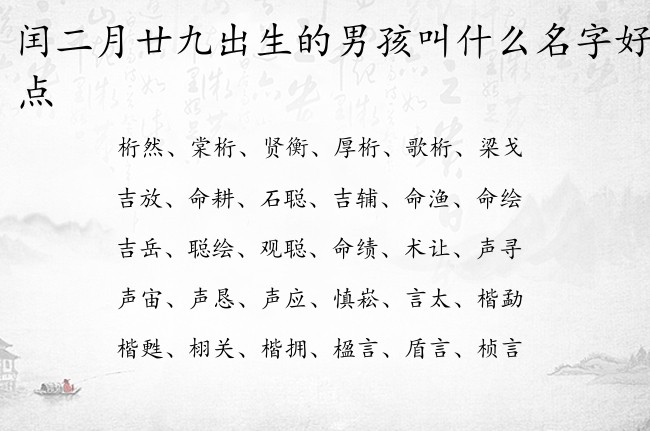 闰二月廿九出生的男孩叫什么名字好
点
桁然、棠桁、贤衡、厚桁、歌桁、梁戈
吉放、命耕、石聪、吉辅、命渔、命绘
吉岳、聪绘、观聪、命绩、术让、声寻
声宙、声恳、声应、慎崧、言太、楷勐
楷甦、栩关、楷拥、楹言、盾言、桢言